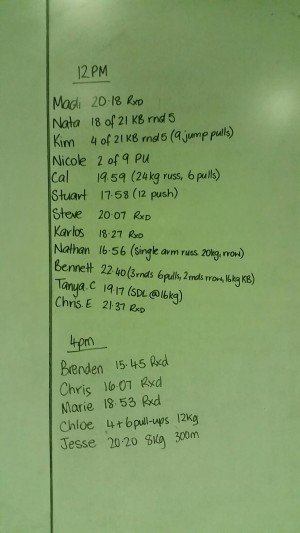 12PM
Madi 20.18 Rxd
Nata 18 of 21 KB rnd 5
Kim 4 of 21 KB rnd 5 (9 jump pulls)
Nicole 2 of 9 PU
Cal 19.59 (24kg russ, 6 pulls)
Stuart 17.58 (12 push)
Steve 20.07 RxD
Karlos 18.27 RxD
Nathan 16.56 (single arm russ. 20kg, rrow)
Bennett 22.40 (3rnds 6pulls, 2rnds rrow, 16kg KB)
Tanya.C 19.17 (SDL @ 16kg)
Chris.E 21.37 RxD
4pm
Brenden 15.45 Rxd
Chris 16.07 Rxd
Marie 18.53 Rxd
Chloe 4+6 pull-ups 12kg
Jesse 20.20 8kg 300m